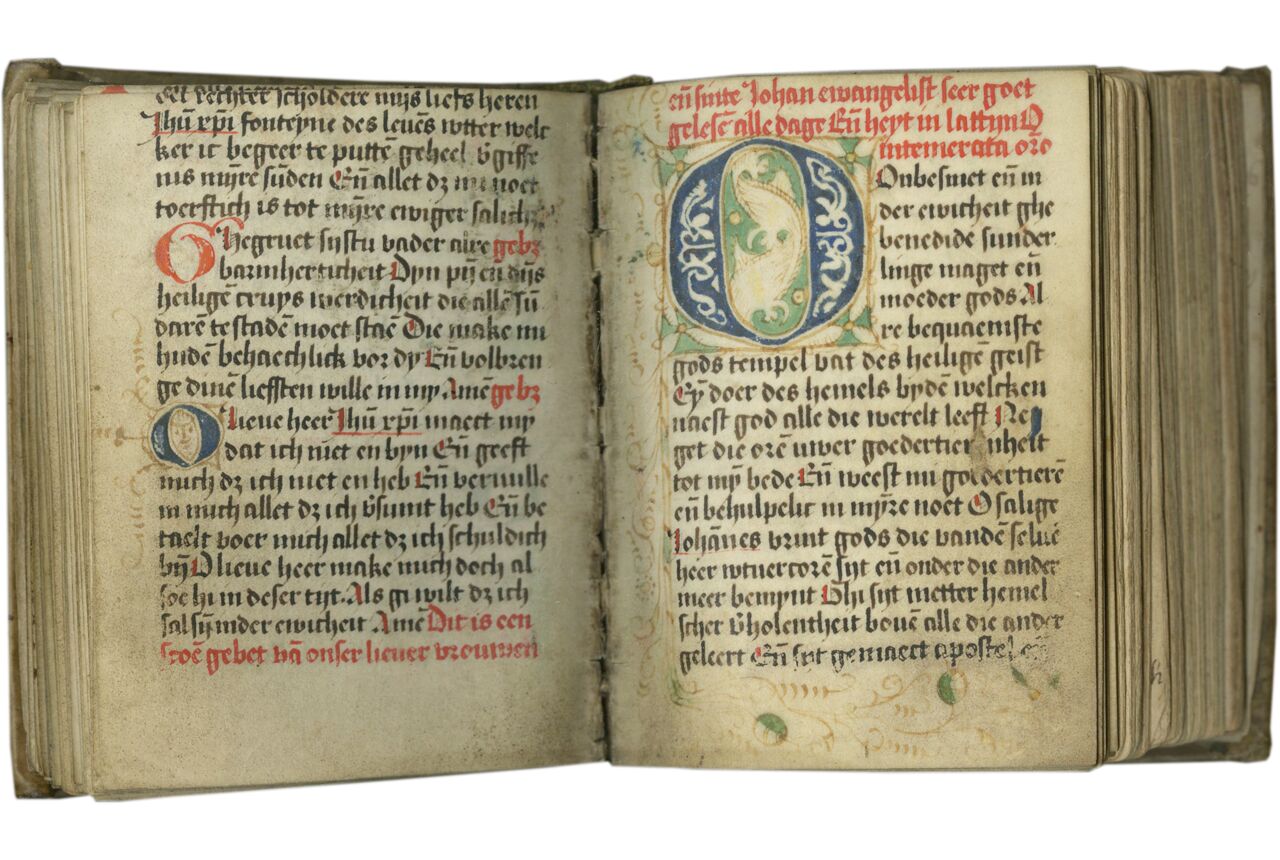 der rechter scholdere mijs liefs heren
Jhū xp̄i fonteyne des leuēs wtter welc
ker ic begeer te puttē geheel v̄giffe
nis mijre sūden En̄ allet dz mi noet
toerftich is tot mijre ewiger salich
Ghegruet sijstu vader alre gebz
barmherticheit Dyn pijn en̄ dijs
heiligē cruys werdicheit die allē sū
darē te stadē moet staē Die make mi
hudē behaechlick vor dy En̄ volbren
ge dinē liefsten wille in my Amē gebz
O lieue heer Jhū xp̄i maect my
dat ich niet en byn En̄ geeft
mich dz ich niet en heb En̄ vernulle
in mich allet dz ich v̄sumt heb En̄ be
taelt voer mich allet dz ich schuldich
byn̄ O lieue heer make mich doch al
soe hi in deser tijt. Als gi wilt dz ich
sal sijn inder ewicheit Amē Dit is een
scoē gebet vā onser lieuer vrouwen
en̄ sinte Johan ewangelist seer goet
gelesē alle dage En̄ heyt in lattijn O
intemerata orō
Onbesmet en̄ in
der ewicheit ghe
benedide sunder
linge maget en̄
moeder gods Al
re bequaemste
gods tempel vat des heiligē geist
Ey doer des hemels bydē welcken
naest god alle die werelt leeft Ne
get die orē uwer goedertierenheit
tot mȳ bede En̄ weest mi goedertierē
en̄ behulpelic in mȳre noet O salige
Johānes vrint gods die vandē seluē
heer wtuercorē sijt en̄ onder die ander
meer bemynt Ghi sijt metter hemel
scher v̄holentheit bouē alle die ander
geleert En̄ sijt gemaect apostel